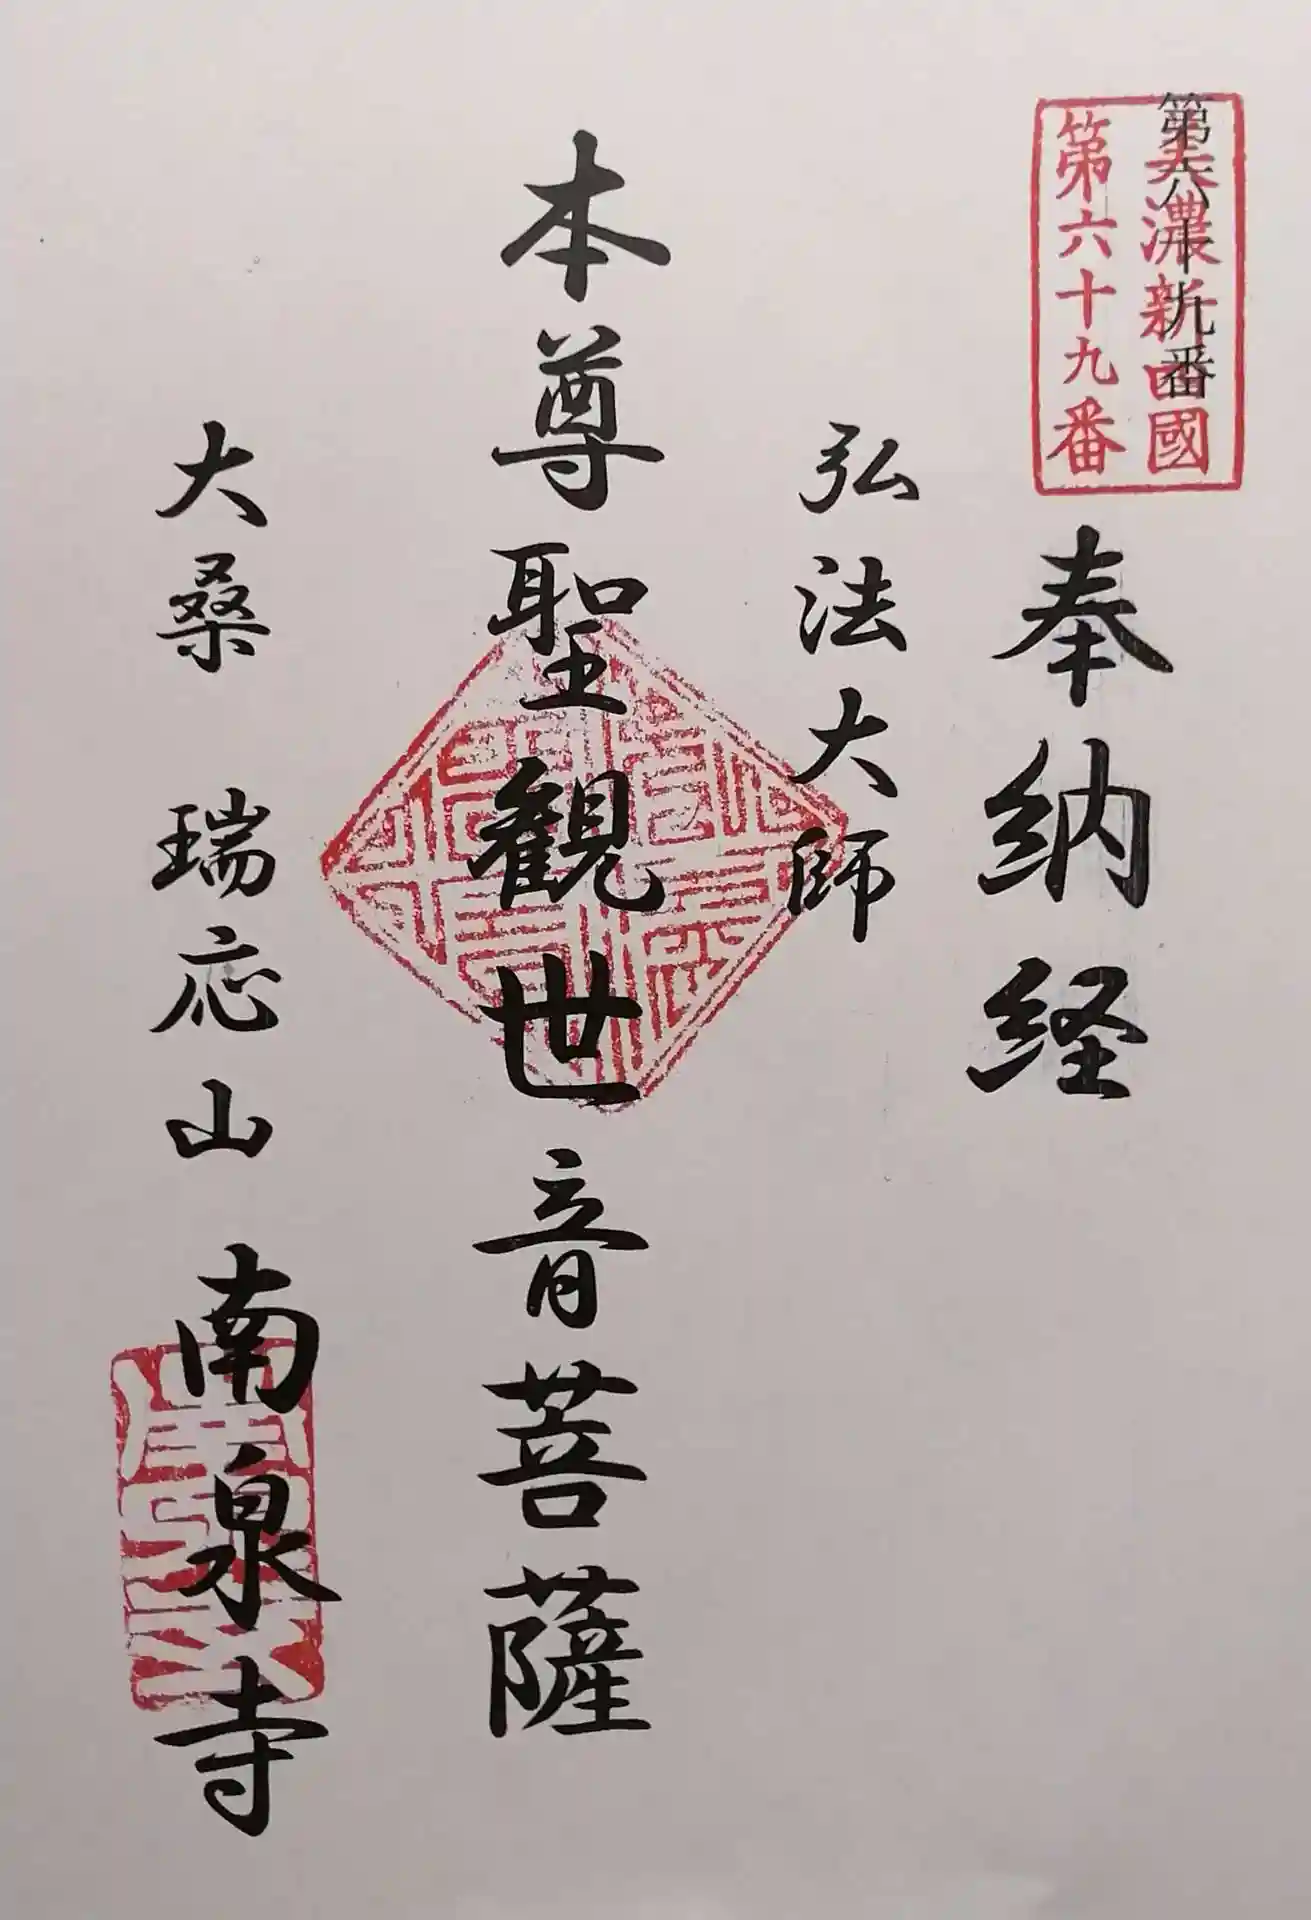 第六十九番
美濃新四國
第六十九番
奉納経
弘法大師
本尊聖観世音菩薩
大桑 瑞応山 南泉寺